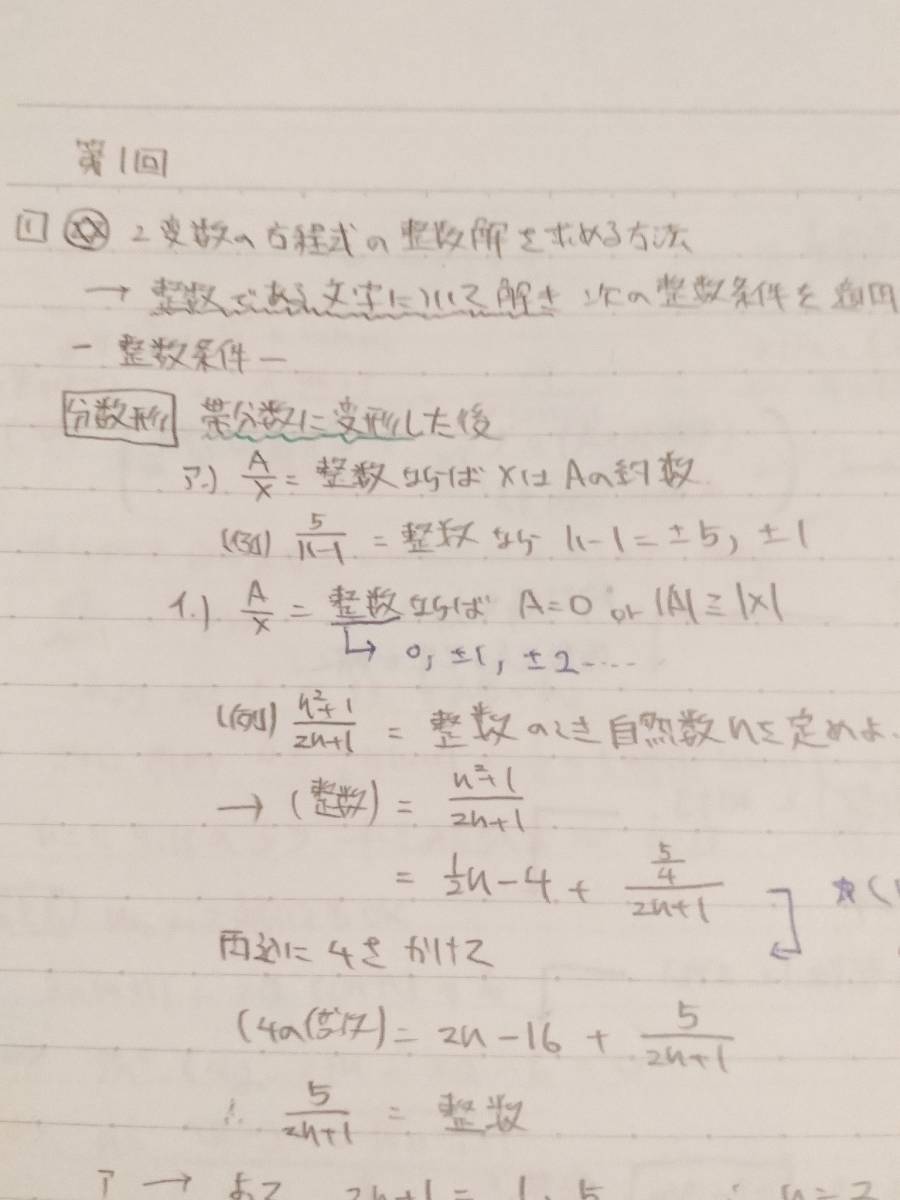 第1回
1 ※ 2変数の方程式の整数解を求める方法
→ 整数である文字について解き 次の整数条件を
― 整数条件 ―
分数形 帯分数に変形した後
ア.) A/x = 整数ならば xはAの約数
(例) 5/(n-1) = 整数なら n-1=±5, ±1
イ.) A/x = 整数ならば A=0 or |A|≧|x|
↳ 0, ±1, ±2....
(例) (n²+1)/(2n+1) = 整数のとき自然数nを定めよ.
→ (整数) = (n²+1)/(2n+1)
= 1/2n-4 + (5/4)/(2n+1)
☆(
両辺に4をかけて
(4の倍数) = 2n-16 + 5/(2n+1)
∴ 5/(2n+1) = 整数
ア → よって 2n+1 = 1, 5